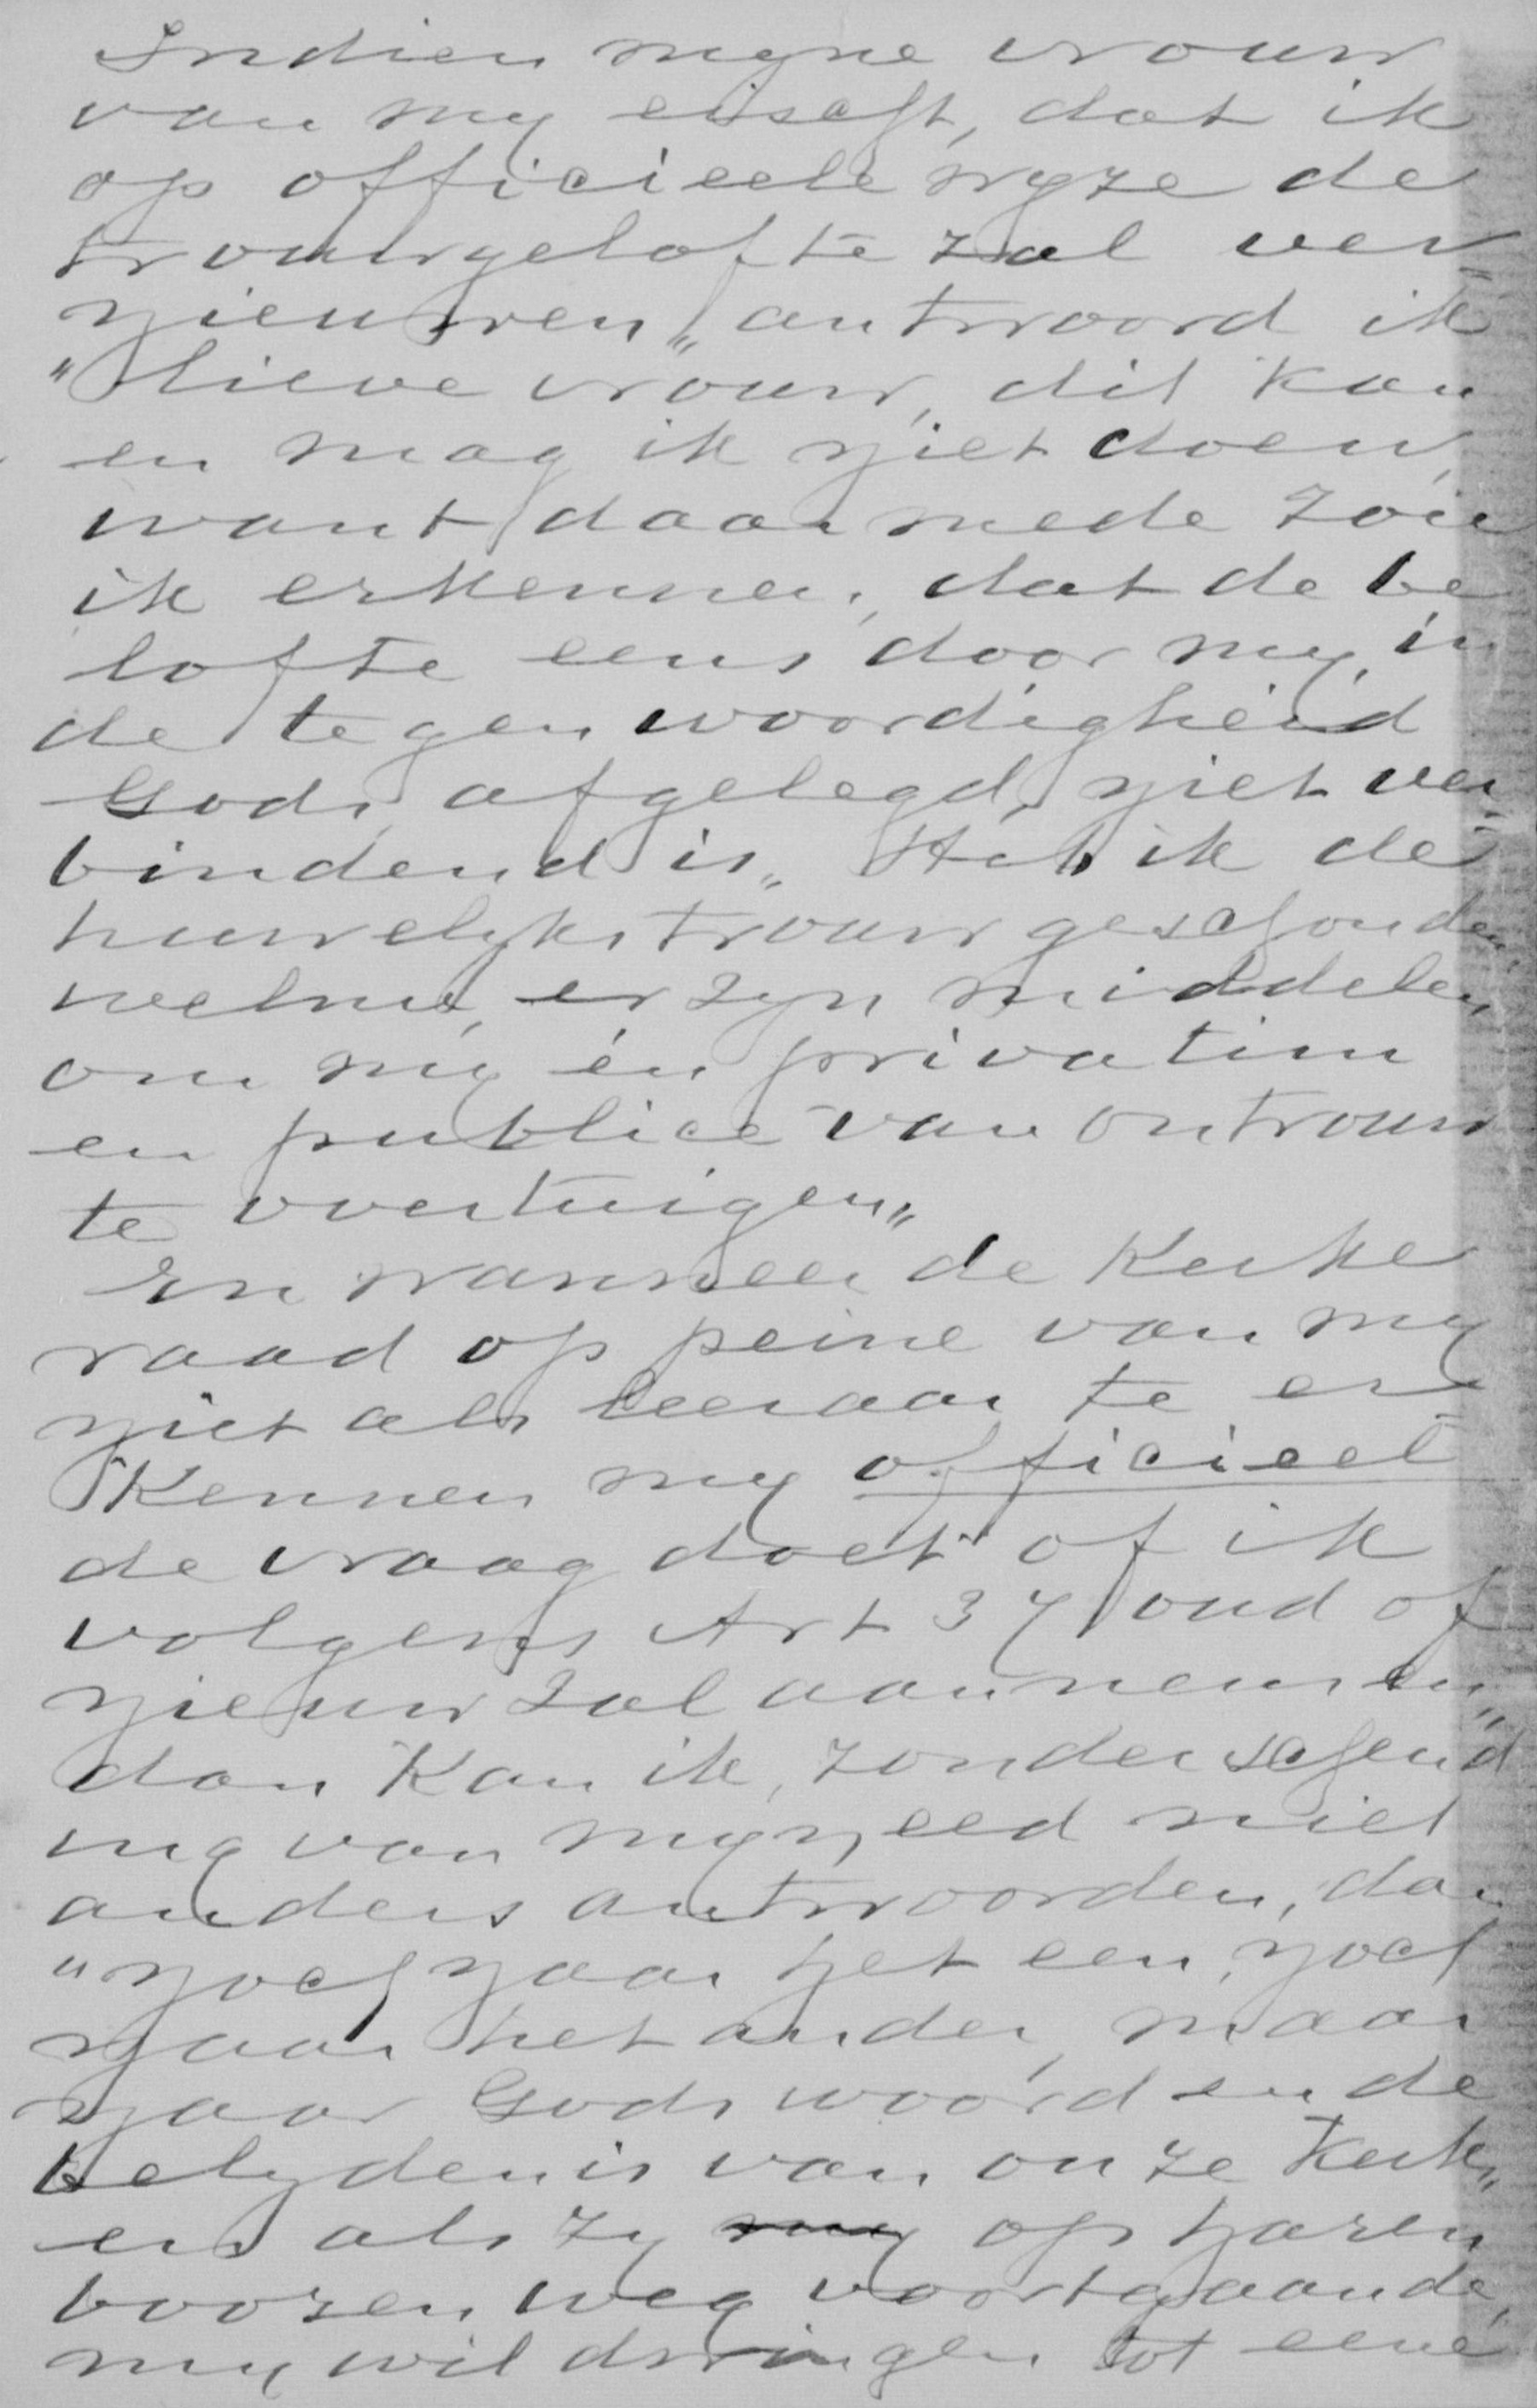 Indien myne vrouw
van my eischt, dat ik
op officieele wyze de
trouwgelofte zal ver=
nieuwen„ antwoord ik
"lieve vrouw, dit kan
en mag ik niet doen,
want daar mede zou
ik erkennen, dat de be
lofte eens door my, in
de tegenwoordigheid
Gods afgelegd, niet ver=
bindend is„ Heb ik de
huwelyks trouw geschonden,
welnu, er zyn middelen,
om my én privatim
en publice van ontrouw
te overtuigen„
En wanneer de Kerke
raad op peine van my
niet als leeraar te er=
kennen my officieel
de vraag doet of ik
volgens Art 37 oud of
nieuw zal aannemen„
dan kan ik, zonder schend
ing van myn eed niet
anders antwoorden, dan
"noch naar het een, noch
naar het ander, maar
naar Gods woord en de
belydenis van onze Kerk„
en als zy my op haren
boozen weg voortgaande,
my wil dwingen tot eene